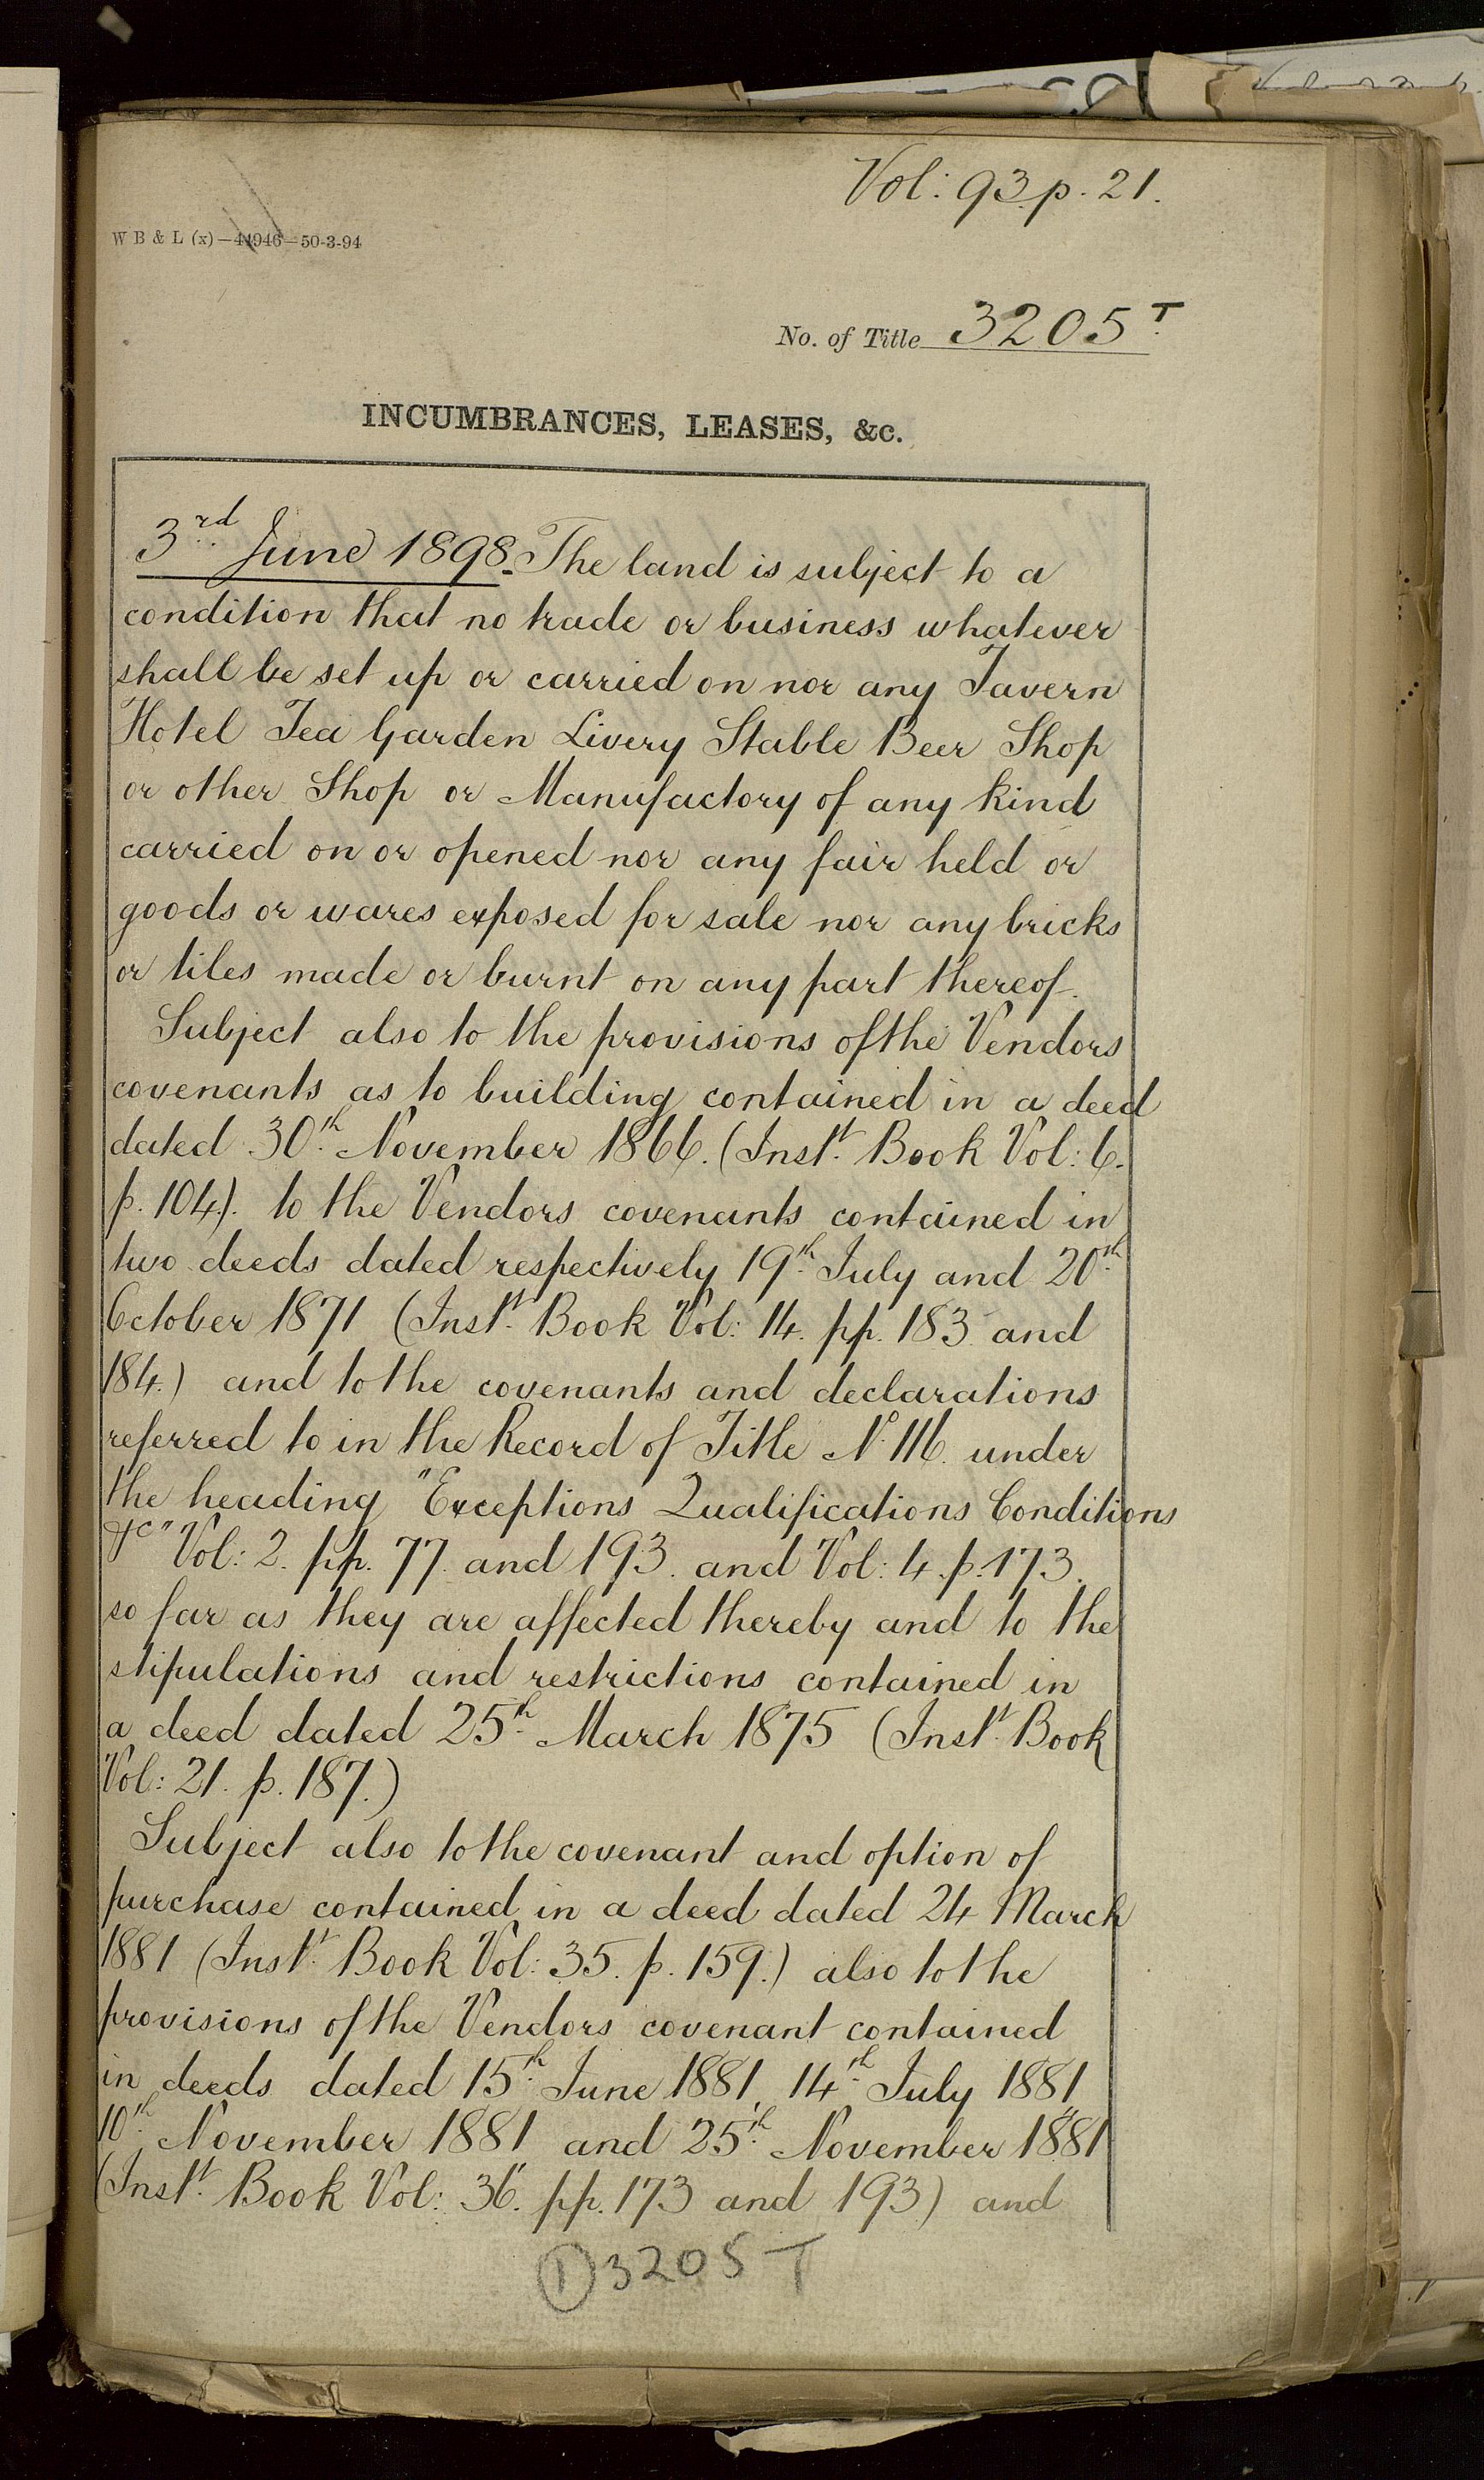 Vol: 93. p. 21.
W B & L (x)—44946—50-3-94
No. of Title 3205 T
INCUMBRANCES, LEASES, &c.
3rd June 1898. The land is subject to a
condition that no trade or business whatever
shall be set up or carried on nor any Tavern
Hotel Tea Garden Livery Stable Beer Shop
or other Shop or Manufactory of any kind
carried on or opened nor any fair held or
goods or wares exposed for sale nor any bricks
or tiles made or burnt on any part thereof.
Subject also to the provisions of the Vendors
covenants as to building contained in a deed
dated 30th November 1866. (Instt. Book Vol: 6.
p. 104). to the Vendors covenants contained in
two deeds dated respectively 19th July and 20th
October 1871 (Instt. Book Vol: 14. pp. 183 and
184.) and to the covenants and declarations
referred to in the Record of Title No. 116. under
the heading "Exceptions Qualifications Conditions
&c" Vol: 2. pp. 77. and 193. and Vol: 4. p. 173.
so far as they are affected thereby and to the
stipulations and restrictions contained in
a deed dated 25th March 1875 (Instt. Book
Vol: 21. p. 187.)
Subject also to the covenant and option of
purchase contained in a deed dated 24 March
1881 (Instt. Book Vol: 35. p. 159.) also to the
provisions of the Vendors covenant contained
in deeds dated 15th June 1881, 14th July 1881
10th November 1881 and 25th November 1881
(Instt. Book Vol: 36. pp. 173 and 193) and
① 3205 T